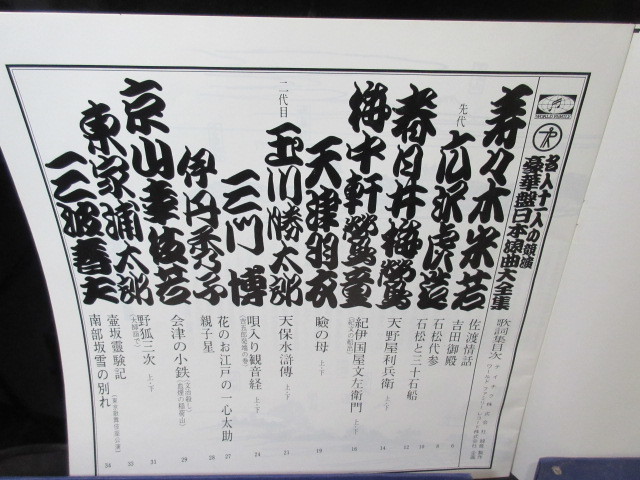 WORLD FAMILY
名人十一人の競演
豪華盤日本浪曲大全集
歌詞集目次
寿々木米若
佐渡情話
吉田御殿
先代
広沢虎造
石松代参
石松と三十石船
春日井梅鶯
天野屋利兵衛 上・下
梅中軒鶯童
紀伊国屋文左衛門 上・下
天津羽衣
瞼の母 上・下
二代目
玉川勝太郎
天保水滸傳 上・下
三門 博
唄入り観音経 上・下
花のお江戸の一心太助
伊丹秀子
親子星
京山幸枝若
会津の小鉄
東家浦太郎
野狐三次 上・下
壺坂霊験記
三波春夫
南部坂雪の別れ